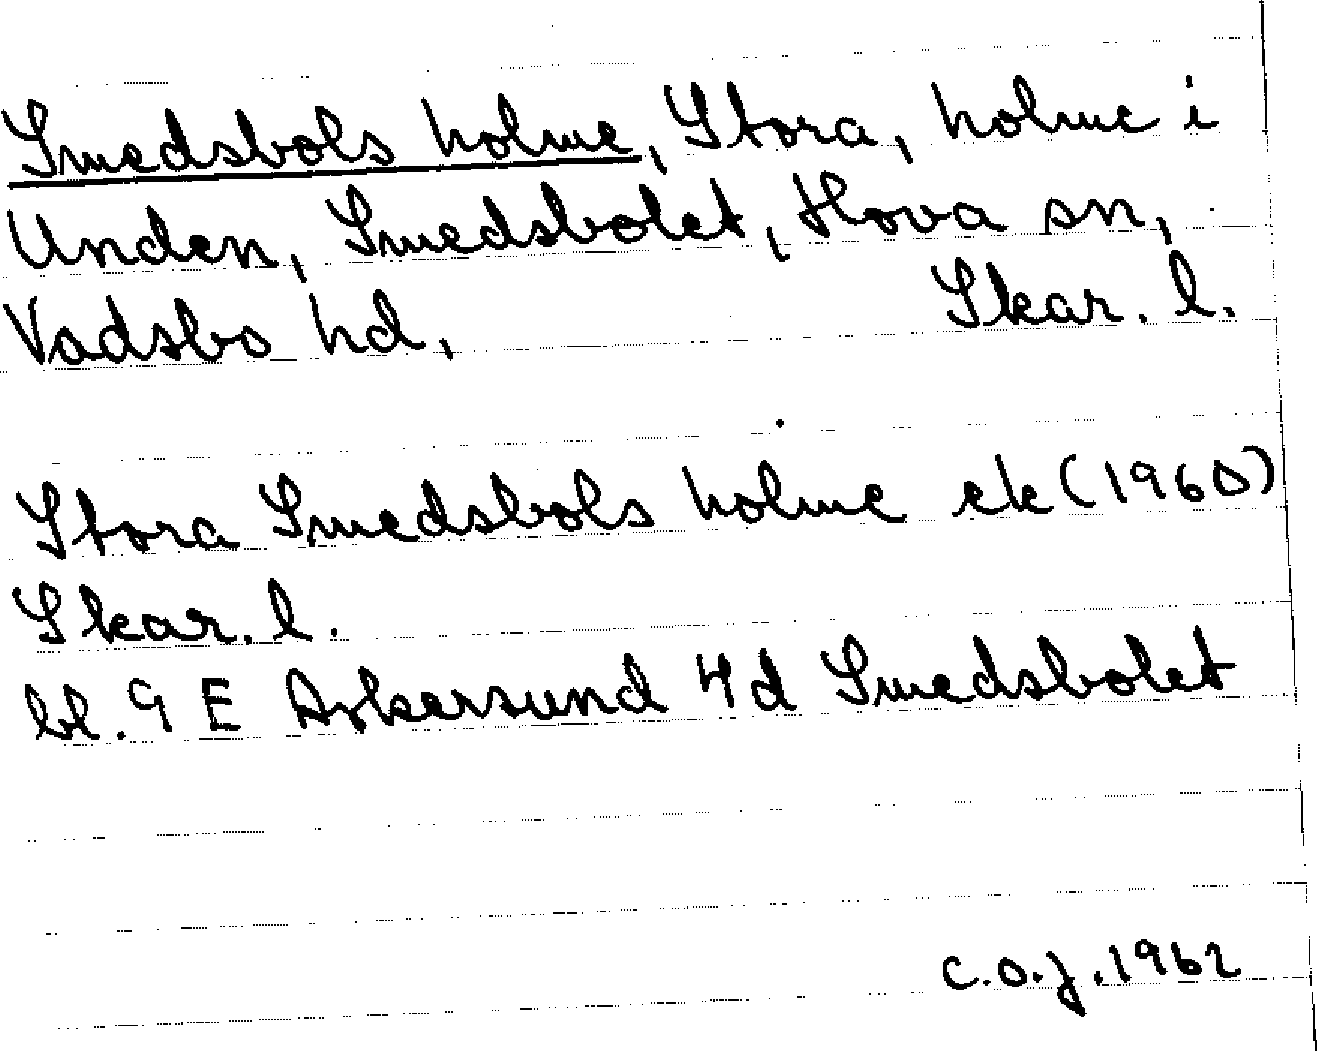 Smedsbols holme, Stora, holme i
Unden, Smedsbolet, Hova sn,
Vadsbo hd, Skar. l.
Stora Smedsbols holme ek (1960)
Skar. l.
bl. 9 E Askersund 4d Smedsbolet
C.O.J. 1962